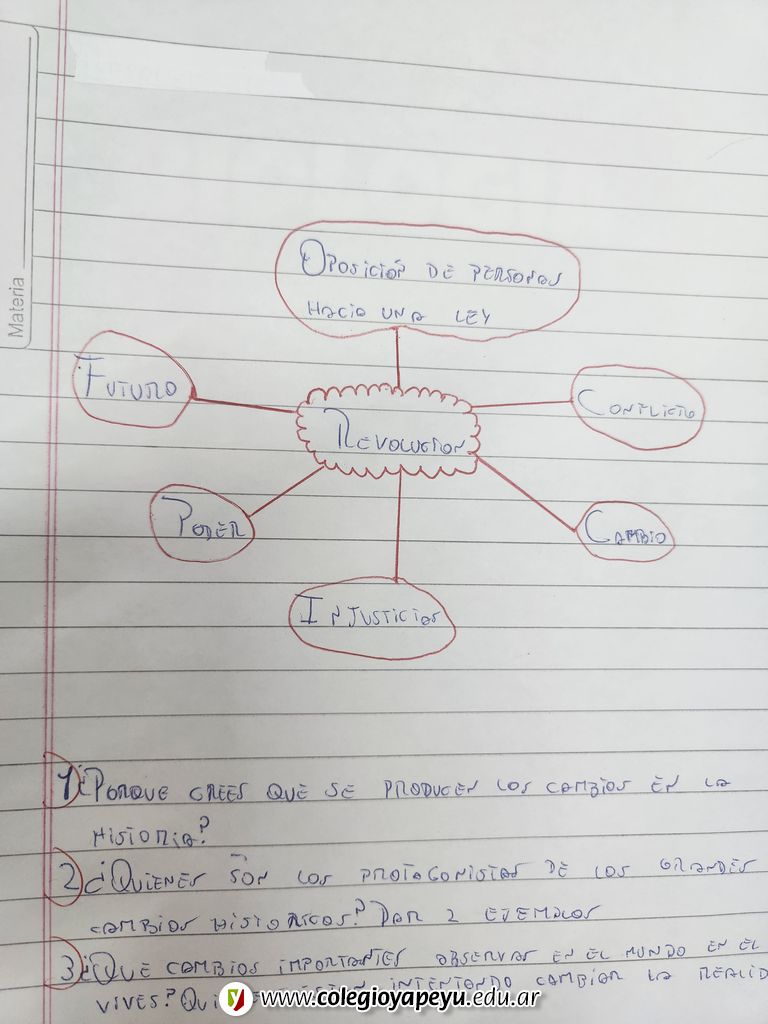 Materia
OPOSICIÓN DE PERSONAS
HACIA UNA LEY
FUTURO
CONFLICTO
REVOLUCION
PODER
CAMBIO
INJUSTICIAS
1 ¿PORQUE CREES QUE SE PRODUCEN LOS CAMBIOS EN LA
HISTORIA?
2 ¿QUIENES SON LOS PROTAGONISTAS DE LOS GRANDES
CAMBIOS HISTORICOS? DAR 2 EJEMPLOS
3 ¿QUE CAMBIOS IMPORTANTES OBSERVAS EN EL MUNDO EN EL
VIVES? INTENTANDO CAMBIAR LA
www.colegioyapeyu.edu.ar